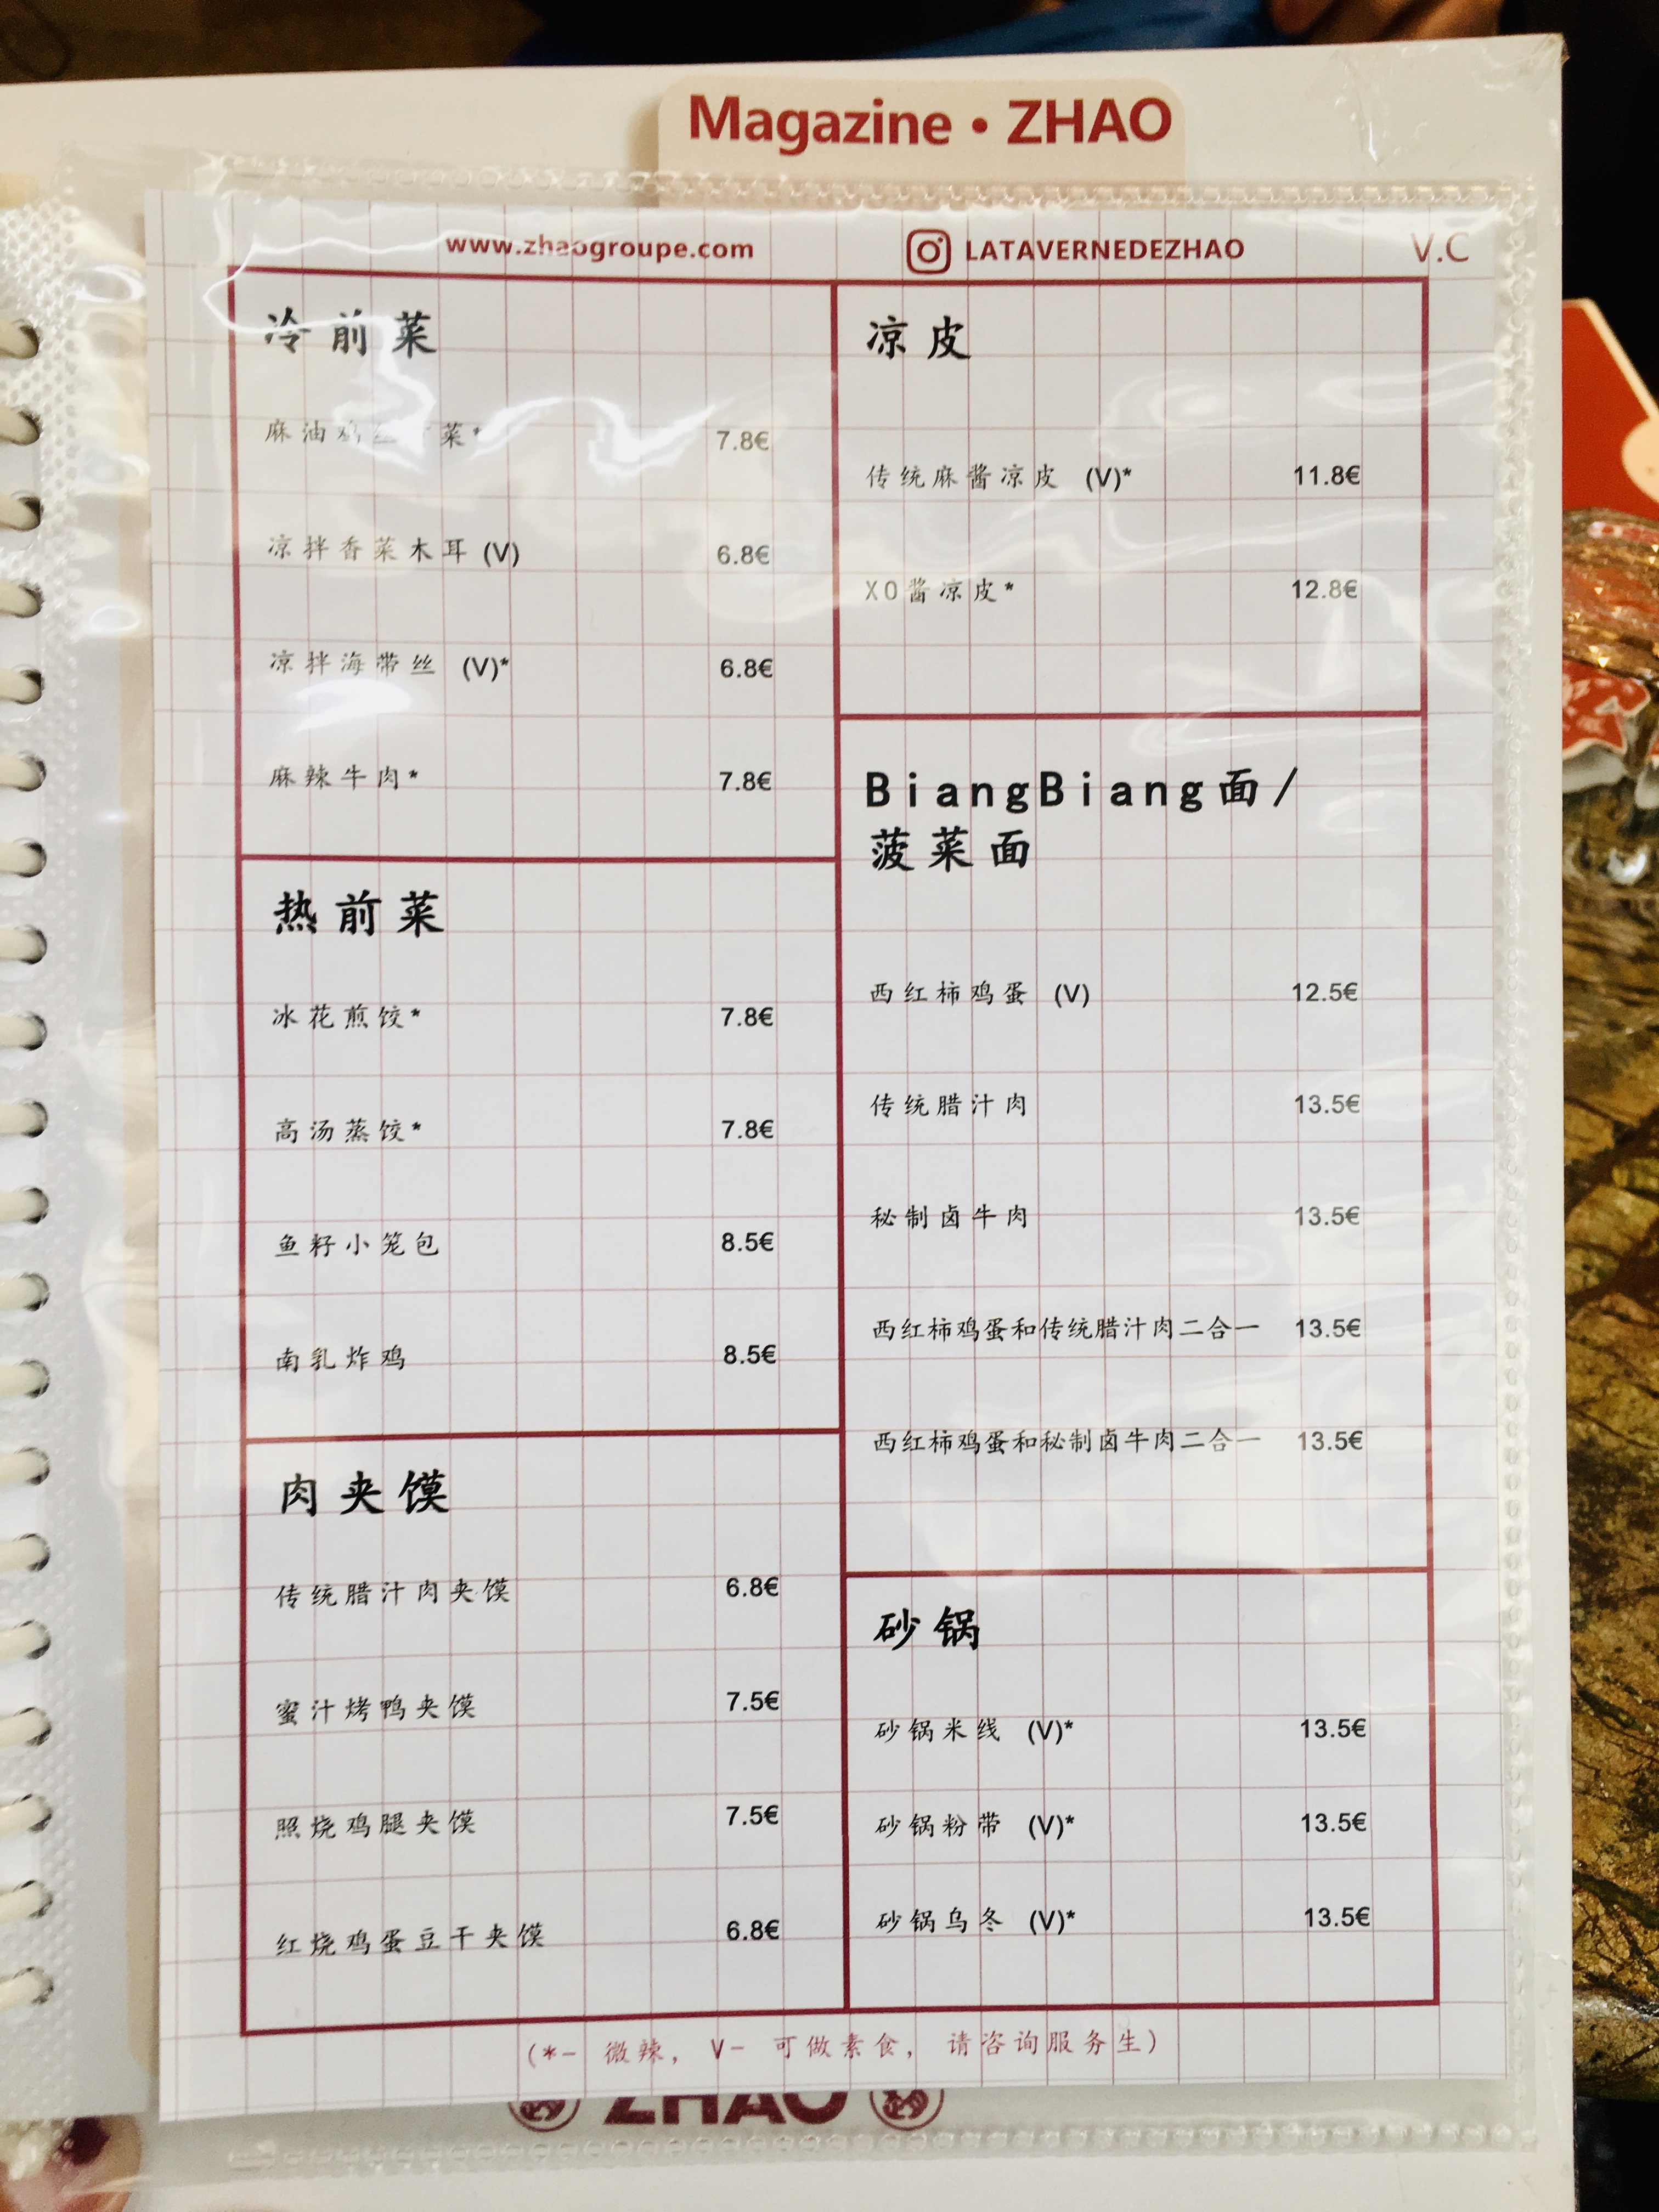 Magazine • ZHAO
www.zhaogroupe.com
LATAVERNEDEZHAO
V.C
冷前菜
麻油鸡丝 菜* 7.8€
凉拌香菜木耳 (V) 6.8€
凉拌海带丝 (V)* 6.8€
麻辣牛肉* 7.8€
热前菜
冰花煎饺* 7.8€
高汤蒸饺* 7.8€
鱼籽小笼包 8.5€
南乳炸鸡 8.5€
肉夹馍
传统腊汁肉夹馍 6.8€
蜜汁烤鸭夹馍 7.5€
照烧鸡腿夹馍 7.5€
红烧鸡蛋豆干夹馍 6.8€
凉皮
传统麻酱凉皮 (V)* 11.8€
XO酱凉皮* 12.8€
BiangBiang面/
菠菜面
西红柿鸡蛋 (V) 12.5€
传统腊汁肉 13.5€
秘制卤牛肉 13.5€
西红柿鸡蛋和传统腊汁肉二合一 13.5€
西红柿鸡蛋和秘制卤牛肉二合一 13.5€
砂锅
砂锅米线 (V)* 13.5€
砂锅粉带 (V)* 13.5€
砂锅乌冬 (V)* 13.5€
(*- 微辣, V- 可做素食, 请咨询服务生)
ZHAO